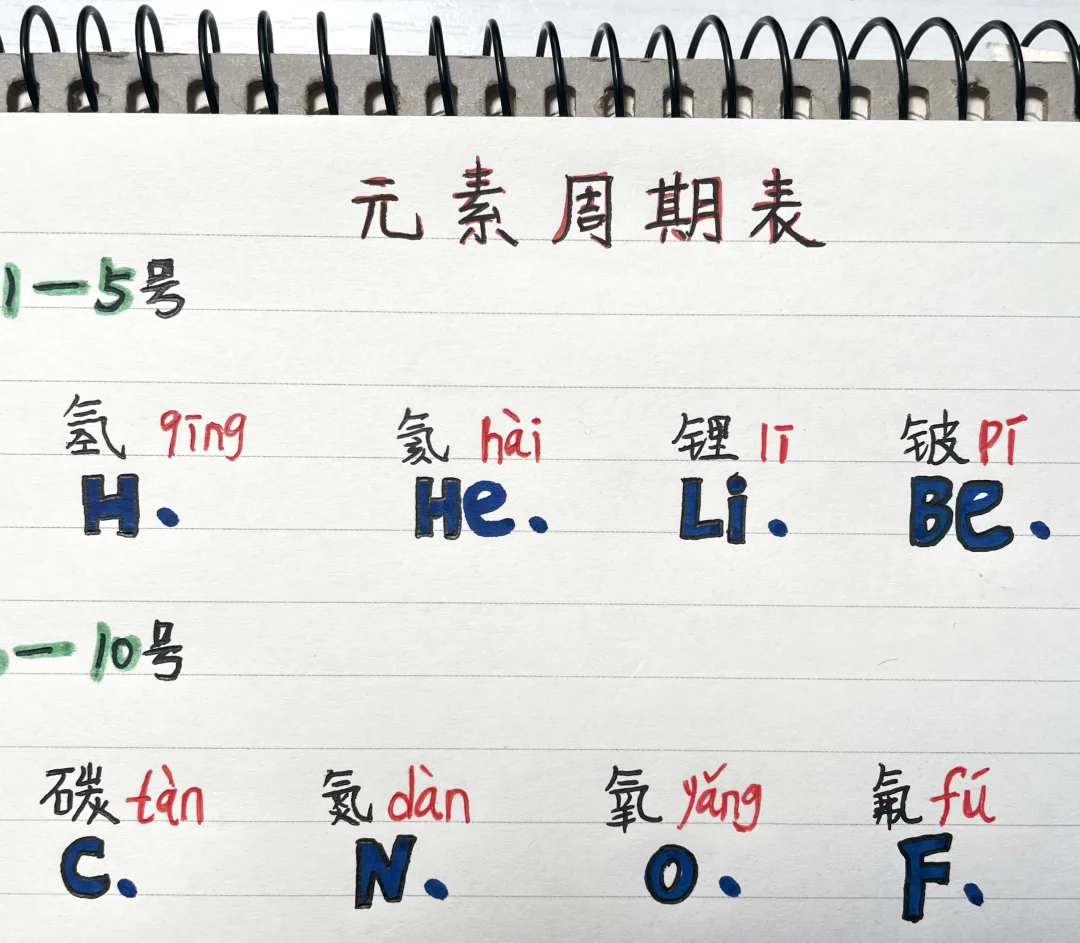 元素周期表
1—5号
氢 qīng 氦 hài 锂 lī 铍 pí
H. He. Li. Be.
—10号
碳 tàn 氮 dàn 氧 yǎng 氟 fú
C. N. O. F.